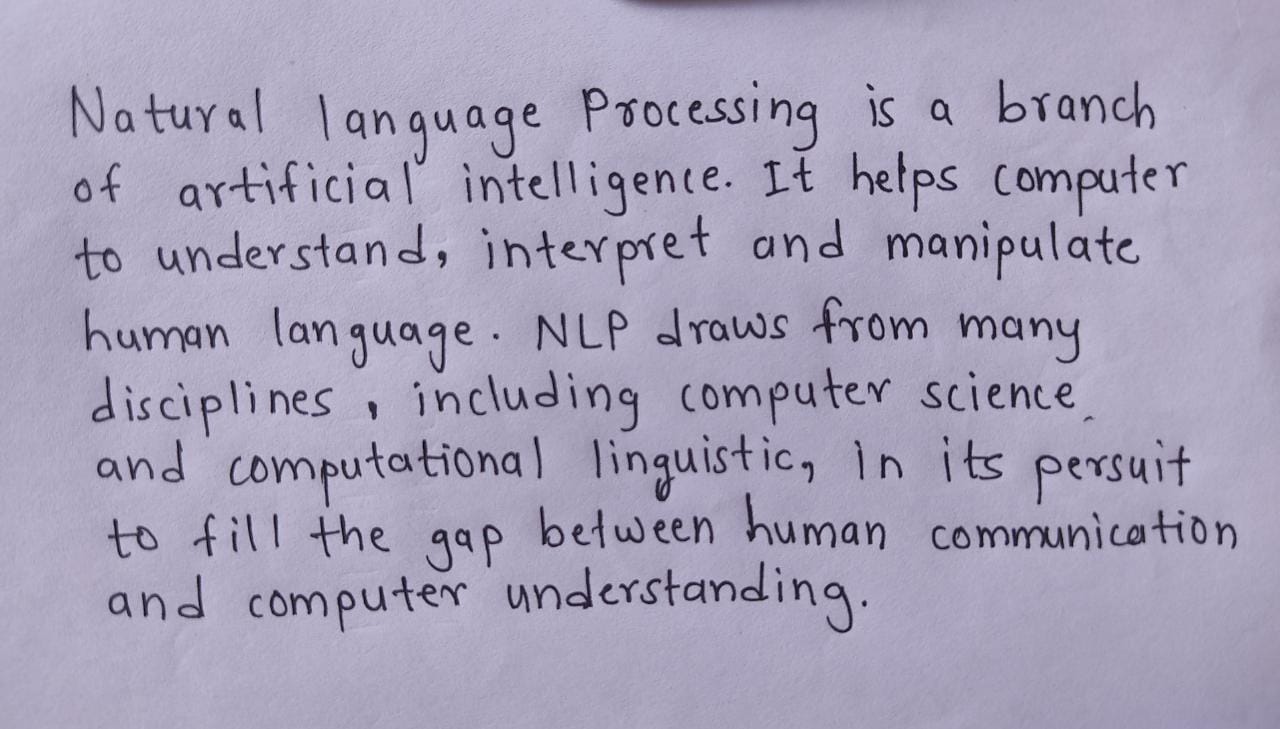 Natural language Processing is a branch
of artificial intelligence. It helps computer
to understand, interpret and manipulate
human language. NLP draws from many
disciplines, including computer science
and computational linguistic, in its persuit
to fill the gap between human communication
and computer understanding.